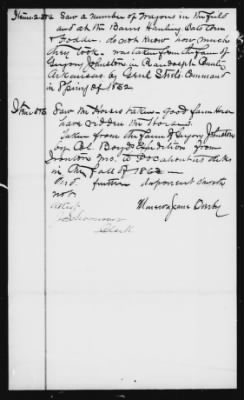 Item 2 & 3 Saw a number of Wagons in the field
and at the Barns Hauling Corn
& Fodder. do not know how much
they took. was taken from the farm of
Gregory Johnston in Randolph County
Arkansas by Genl Command
in Spring of 1862
Saw the Horses taken good
have ridden the
taken from the farm of Gregory Johnston
by Col. Boyds Expedition from
Ironton Mo. to Pocahontas Arks
in the Fall of 1863 —
And further deponent saith
not
Attest
Minerva Jane Darby
Clerk